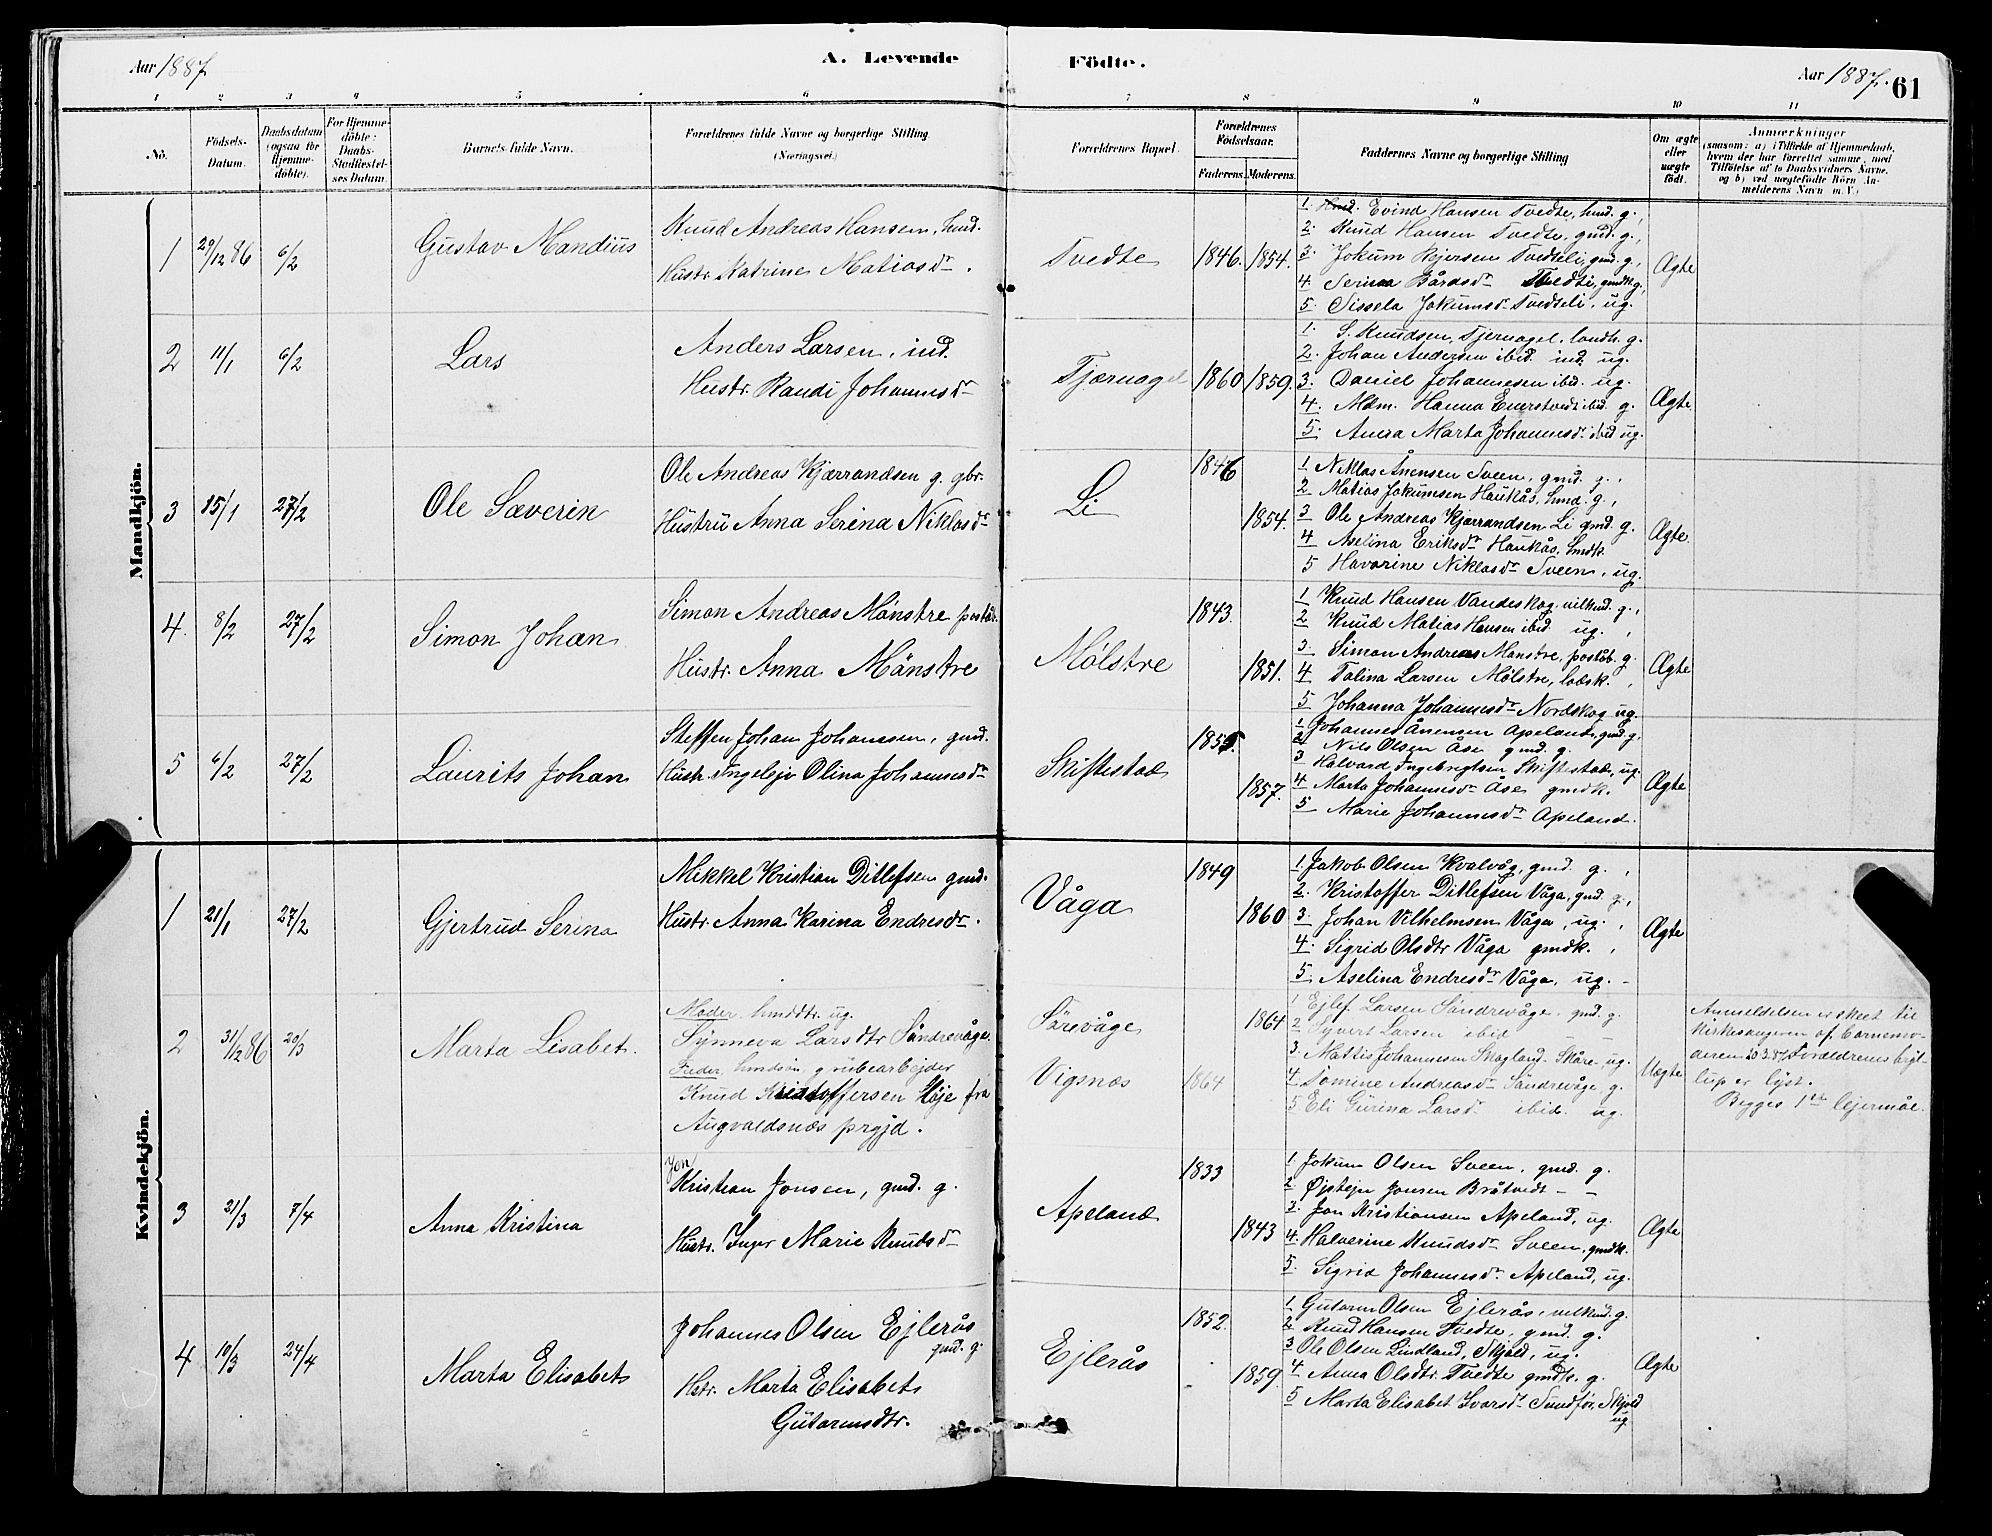 Aar 1887
A. Levende Födte.
Aar 1887. 61
1 2 3 4 5 6 7 8 9 10 11
No.
Födsels-Datum.
Daabsdatum (ogsaa for Hjemme-döbte).
For Hjemme-döbte: Daabs-Stadfæstel-ses Datum.
Barnets fulde Navn.
Forældrenes fulde Navne og borgerlige Stilling (Næringsvei.)
Forældrenes Bopæl.
Forældrenes Födselsaar.
Faderens. Moderens.
Faddernes Navne og borgerlige Stilling
Om ægte eller uægte födt.
Anmærkninger
(saasom: a) i Tilfælde af Hjemmedaab,
hvem der har forrettet samme, med
Tilföielse af to Daabsvidners Navne,
og b) ved uægtefödte Börn An-
melderens Navn m. V.)
Mandkjön.
1 29/12 86 6/2 Gustav Mandius
Knud Andreas Hansen, hmd.
Hustr. Katrine Matiasdr.
Tvedte 1846. 1854.
1. Evind Hansen Tvedte, hmd. g.,
2. Knud Hansen Tvedte, gmd. g.,
3. Jokum Rejersen Tvedteli, gmd. g.,
4. Serina Bårdsdr Tvedte, gmdk. g.,
5. Sissela Jokumsdr Tvedteli, ug.
Ægte
2 11/1 6/2 Lars
Anders Larsen, ind.
Hustr. Randi Johannesdr
Tjærnagel 1860 1859.
1. S. Knudsen, Tjernagel, landh. g.
2. Johan Andersen ibid. ind. ug.
3. Daniel Johannesen ibid. ug.
4. Mdm. Hanna Enerstvedt ibid. g.
5. Anna Marta Johannesdr ibid ug.
Ægte
3 15/1 27/2 Ole Sæverin
Ole Andreas Kjærrandsen g. gbr.
Hustru Anna Serina Niklasdr
Li 1846 1854.
1 Niklas Ånensen Sveen, gmd. g.,
2 Matias Jokumsen Haukås, hmd. g.,
3 Ole Andreas Kjærrandsen Li gmd. g.
4 Aselina Eriksdr Haukås, hmdk.
5 Havarine Niklasdr Sveen, ug.
Ægte
4. 8/2 27/2 Simon Johan
Simon Andreas Mönstre poståb.
Hustr. Anna Mönstre
Mölstre 1843. 1851.
1 Knud Hansen Vandeskog, vilkmd. g.,
2 Knud Matias Hansen ibid. ug.,
3 Simon Andreas Mönstre, poståb. g.
4 Talina Larsen Mölstre, lodsk.,
5 Johanna Johannesdr Nordskog ug.
Ægte
5 6/2 27/2 Laurits Johan
Steffen Johan Johannesen, gmd.
Hustr. Ingelejv Olina Johannesdr
Skiftestad 1855. 1857.
1 Johannes Ånensen Apeland, gmd. g,
2 Nils Olsen Åse gmd. g.
3 Halvard Ingebrigtsen Skiftestad, ug.
4 Marta Johannesdr Åse gmdk.
5 Marie Johannesdr Apeland.
Ægte
Kvindekjön.
1 21/1 27/2 Gjertrud Serina
Mikkel Kristian Ditlefsen gmd.
Hustr. Anna Karina Endresdr.
Våga 1849 1860
1. Jakob Olsen Kvalvåg, gmd. g.,
2. Kristoffer Ditlefsen Våga, gmd. g.,
3. Johan Vilhelmsen Våga, ug.,
4. Sigrid Olsdtr Våga gmdk.,
5. Aselina Endresdr Våga, ug.
Ægte
2 31/12 86 20/3 Marta Lisabet.
Moder, hmddtr. ug.
Synneva Larsdtr Söndrevåge.
Fader, hmdsön, grubearbejder
Knud Kristoffersen Höje fra
Augvaldsnæs prgjd.
Sörevåge
Vigsnæs 1864 1864
1 Ejlef Larsen Söndrevåge, gmd. g.
2 Syvert Larsen ibid
3. Mattis Johannesen Skogland Skåre ug.
4 Tomine Andreasdr Söndrevåge g.
5 Eli Gurina Larsdr ibid. ug.
Uægte
Anmeldelsen er skeet til
kirkesangeren af barnemo-
deren 20.3.87. Forældrenes bryl-
lup er lyst.
Begges 1ste lejermål.
3 21/3 7/4 Anna Kristina
Jon
Kristian Jonsen, gmd. g.
Hustr. Inger Marie Knutsdr
Apeland 1833 1843
1. Jokum Olsen Sveen, gmd. g.
2. Öjstejn Jonsen Bråtvedt - -
3. Jon Kristiansen Apeland, ug.
4. Halverine Knudsdr Sveen, gmdk.
5. Sigrid Johannesdr Apeland, ug.
Ægte
4 10/3 24/4 Marta Elisabet
Johannes Olsen Ejlerås
gmd. g.
Hstr. Marta Elisabet
Gutormsdtr.
Ejlerås 1852. 1859.
1 Gutorm Olsen Ejlerås, vilkmd. g.
2 Knud Hansen Tvedte, gmd. g.
3 Ole Olsen Lindland, Skjold, ug.
4 Anna Olsdtr Tvedte gmdk. g.
5 Marta Elisabet Ivarsdr Sundför, Skjold
ug.
Ægte